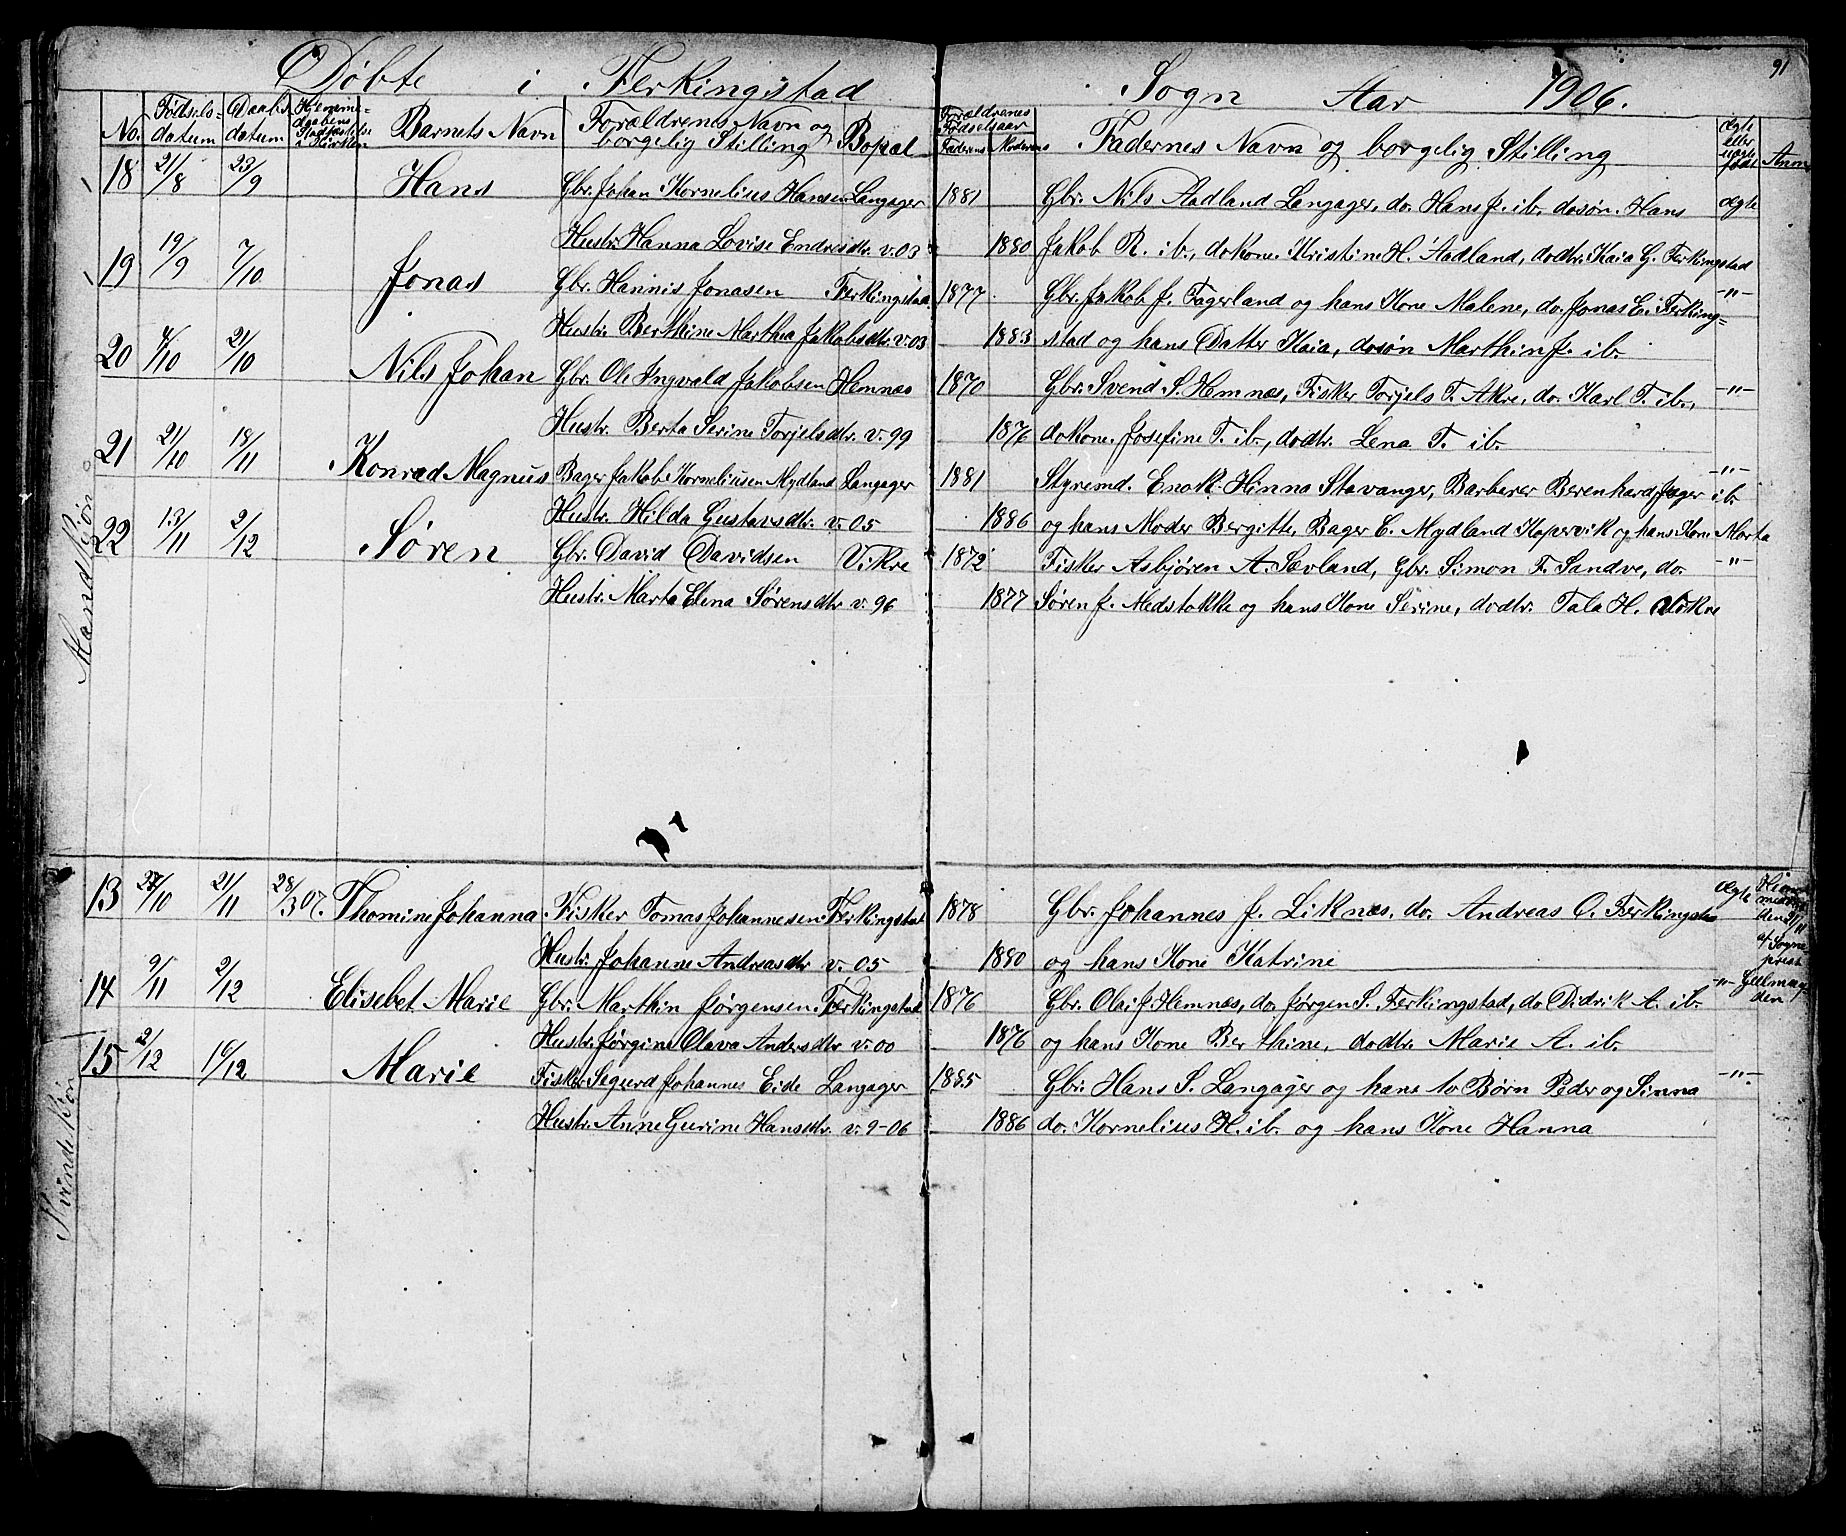 91
Døbte i Ferkingstad Sogn Aar 1906.
No. Fødsels-datum Daabs datum Hjemmedaabens Stadfæstelse i Kirken Barnets Navn Forældrenes Navn og borgelig Stilling Bopæl Forældrenes Fødselsaar Faderens Moderens Fadernes Navn og borgelig Stilling Ægte eller uægte født Anm
Mandkjøn
18 21/8 23/9 Hans Gbr. Johan Kornelius Hansen Langager 1881 Gbr. Nils Aadland Langager, do. Hans J. ib. dosøn. Hans ægte
Hustr. Hanna Lovise Endresdtr. v. 03 1880 Jakob R. ib., dokone. Kristine H. Aadland, dodtr. Kaia G. Ferkingstad
19 19/9 7/10 Jonas Gbr. Hannis Jonasen Ferkingstad 1877 Gbr. Jakob J. Fagerland og hans Kone Malene, do. Jonas E. Ferking= -"-
Hustr. Berthine Marthea Jakobsdtr. v. 03 1883 stad og hans Datter Kaia, dosøn Marthin J. ib.
20 4/10 21/10 Nils Johan Gbr. Ole Ingvald Jakobsen Hemnes 1870 Gbr. Svend S. Hemnæs, Fisker Torjels T. Akre, do. Karl T. ib., -"-
Hustr. Berta Serine Torjelsdtr. v. 99 1876 dokone. Josefine T. ib., dodtr. Lena T. ib.
21 21/10 18/11 Konrad Magnus Bager Jakob Korneliusen Mydland Langager 1881 Styremd. Enok Hinna Stavanger, Barberer Berenhard Jæger ib. -"-
Hustr. Hilda Gustavsdtr. v. 05 1886 og hans Moder Bergitte, Bager C. Mydland Kopervik og hans Kone Marta
22 13/11 2/12 Søren Gbr. David Davidsen Vikre 1872 Fisker Asbjøren A. Sævland, Gbr. Simon F. Sandve, do. -"-
Hustr. Marta Elena Sørensdtr. v. 96 1877 Søren J. Medstokke og hans Kone Serine, dodtr. Tala H. Vikre
Kvindekjøn
13 27/10 21/11 28/3 07. Thomine Johanna Fisker Tomas Johannesen Ferkingstad 1878 Gbr. Johannes J. Liknes, do. Andreas O. Ferkingsta ægte
Hustr. Johanne Andreasdtr v. 05 1880 og hans Kone Katrine
af Sogneprest
14 9/11 2/12 Elisebet Marie Gbr. Marthin Jørgensen Ferkingstad 1876 Gbr. Ola J. Hemnæs, do. Jørgen S. Ferkingstad, do Didrik A. ib. -"-
Hustr. Jørgine Olava Andersdtr v. 00 1876 og hans Kone Berthine, dodtr. Marie A. ib.
15 2/12 16/12 Marie Fisker Sigurd Johannes Eide Langager 1885 Gbr. Hans S. Langager og hans to Børn Peder og Sinna -"-
Hustr. Anne Gurine Hansdtr. v. 9-06 1886 do. Kornelius H. ib. og hans Kone Hanna